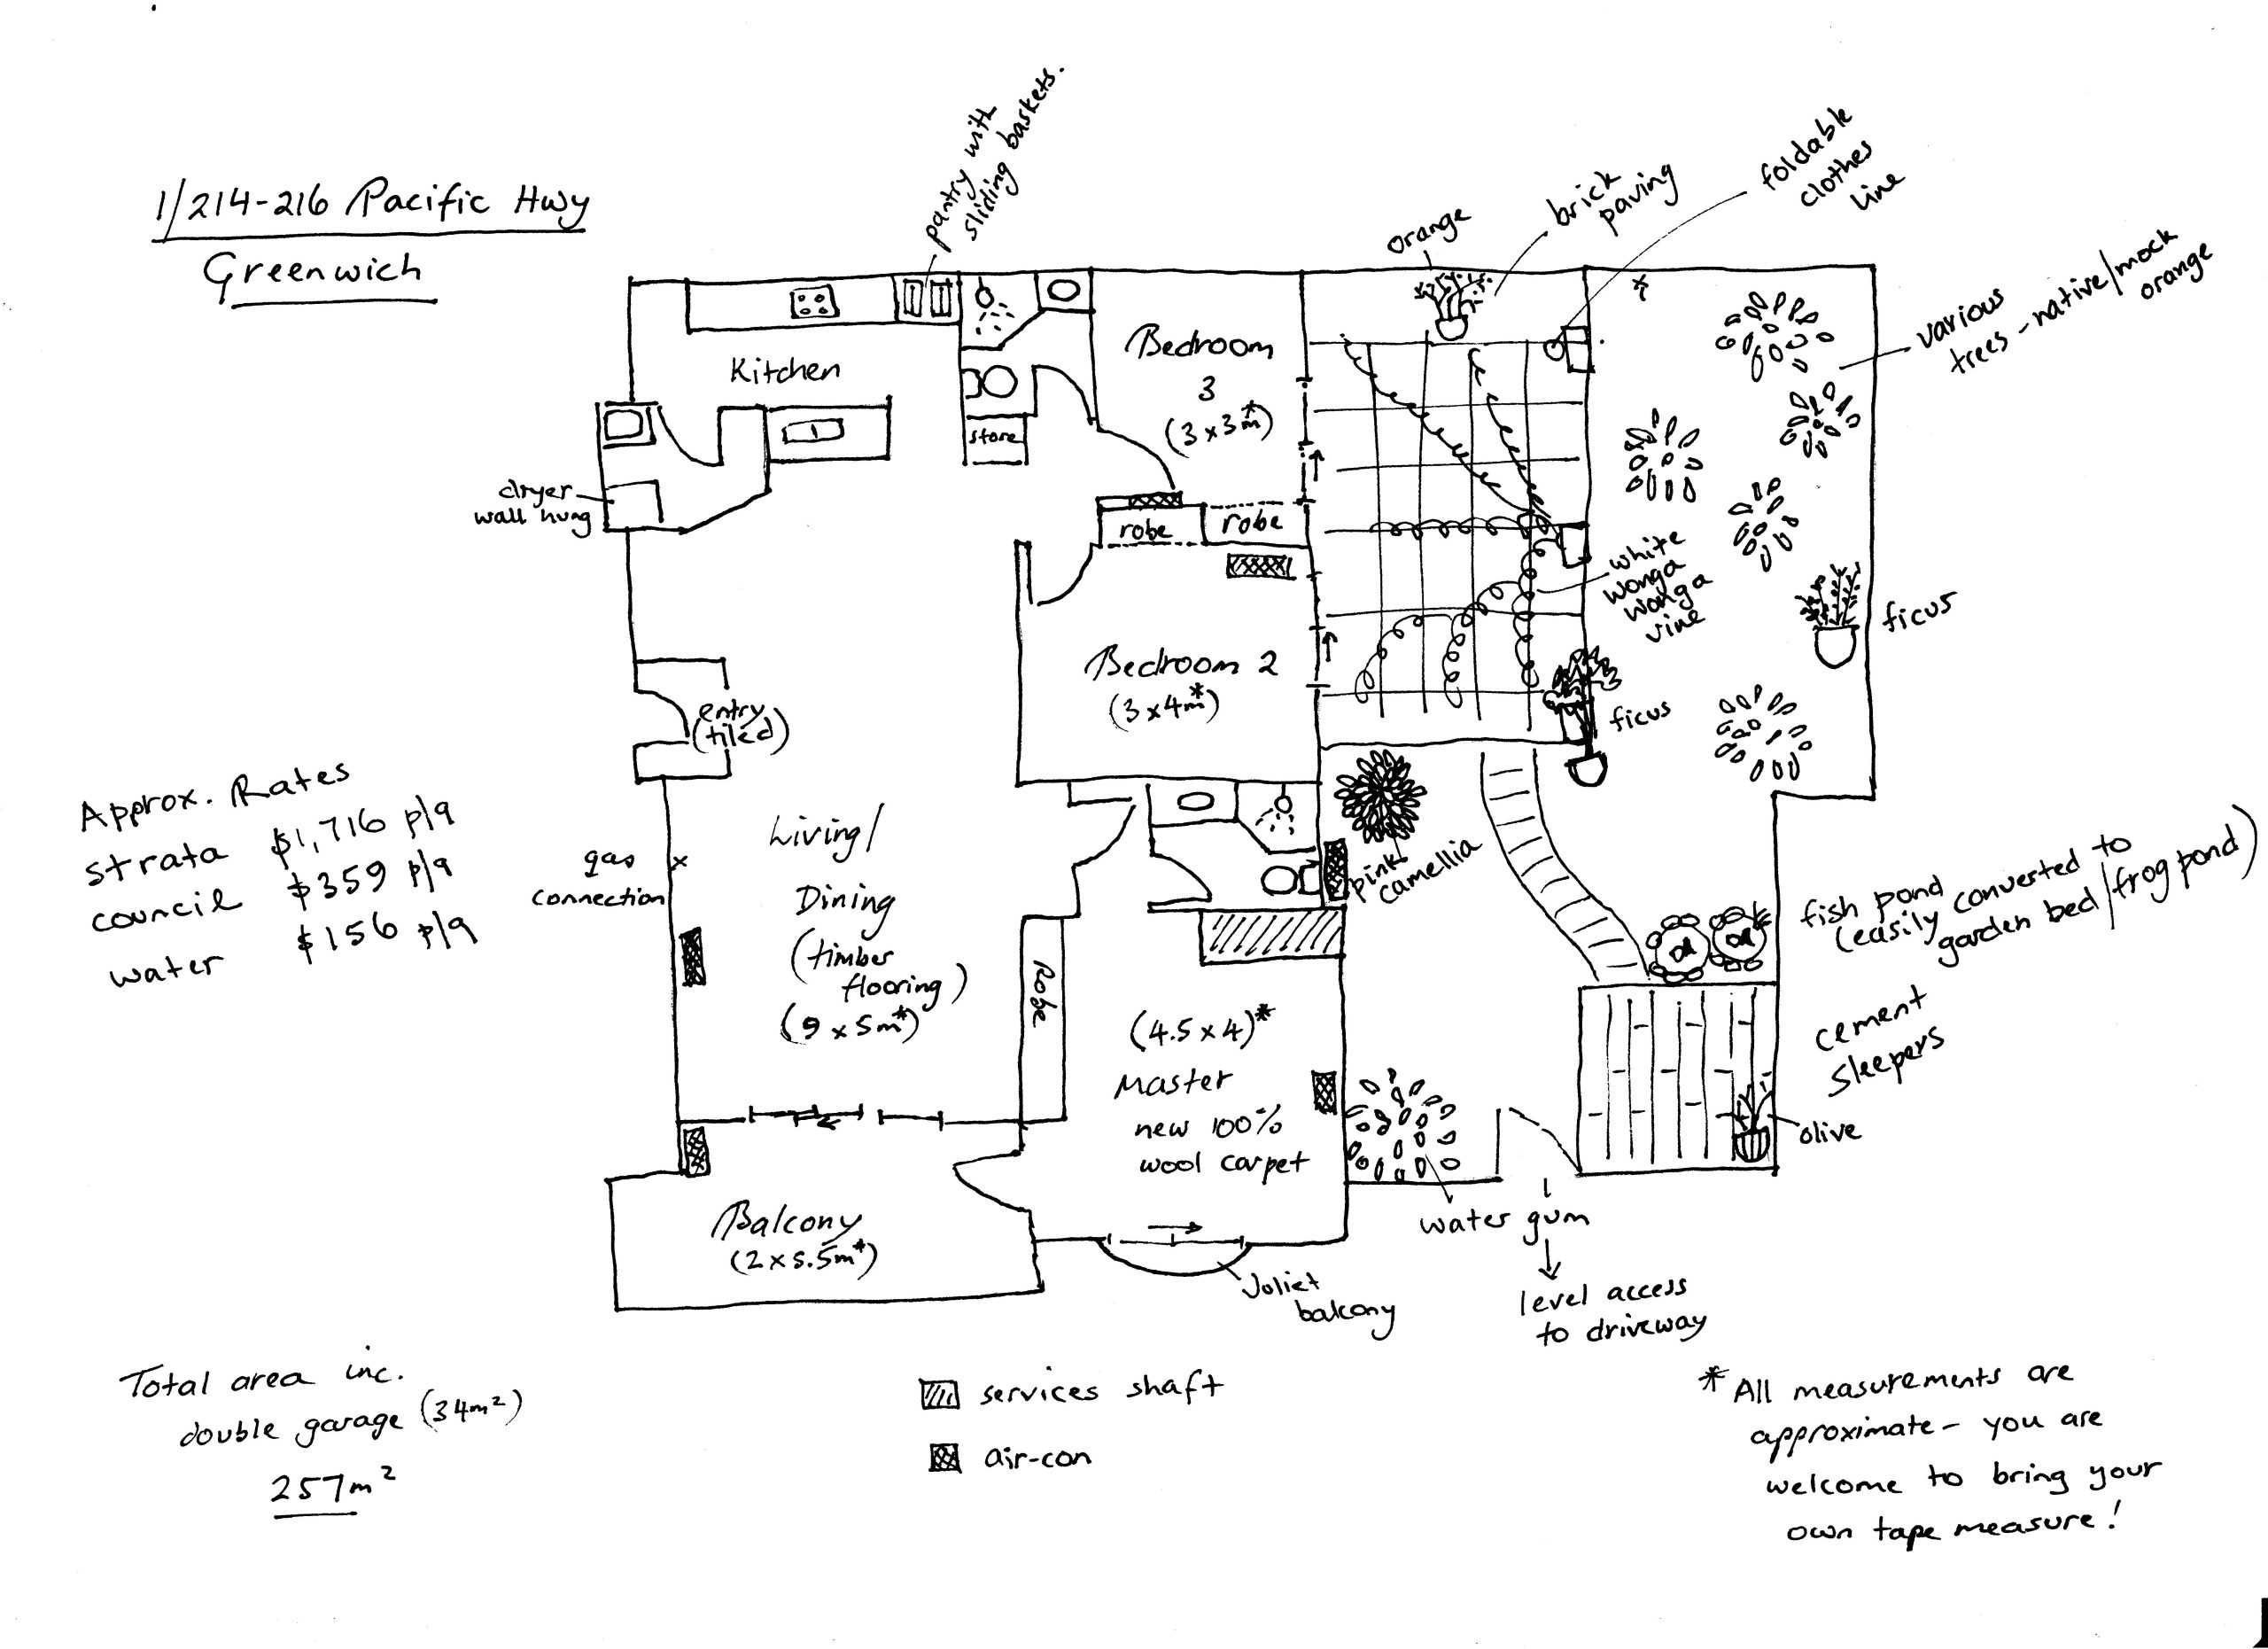 1/214-216 Pacific Hwy
Greenwich
pantry with
sliding baskets.
orange
brick
paving
foldable
clothes
line
various
trees - native/mock
orange
Kitchen
store
Bedroom
3
(3 x 3m*)
dryer
wall hung
robe
robe
white
wonga
wonga
vine
ficus
ficus
Bedroom 2
(3 x 4m*)
entry
(tiled)
Approx. Rates
strata $1,716 p/q
council $359 p/q
water $156 p/q
gas
connection
Living/
Dining
(timber
flooring)
(9 x 5m*)
Robe
pink
camellia
fish pond
(easily converted to
garden bed/frog pond)
cement
sleepers
olive
(4.5 x 4)*
Master
new 100%
wool carpet
water gum
level access
to driveway
Balcony
(2 x 5.5m*)
Joliet
balcony
Total area inc.
double garage (34m²)
257m²
services shaft
air-con
* All measurements are
approximate - you are
welcome to bring your
own tape measure!